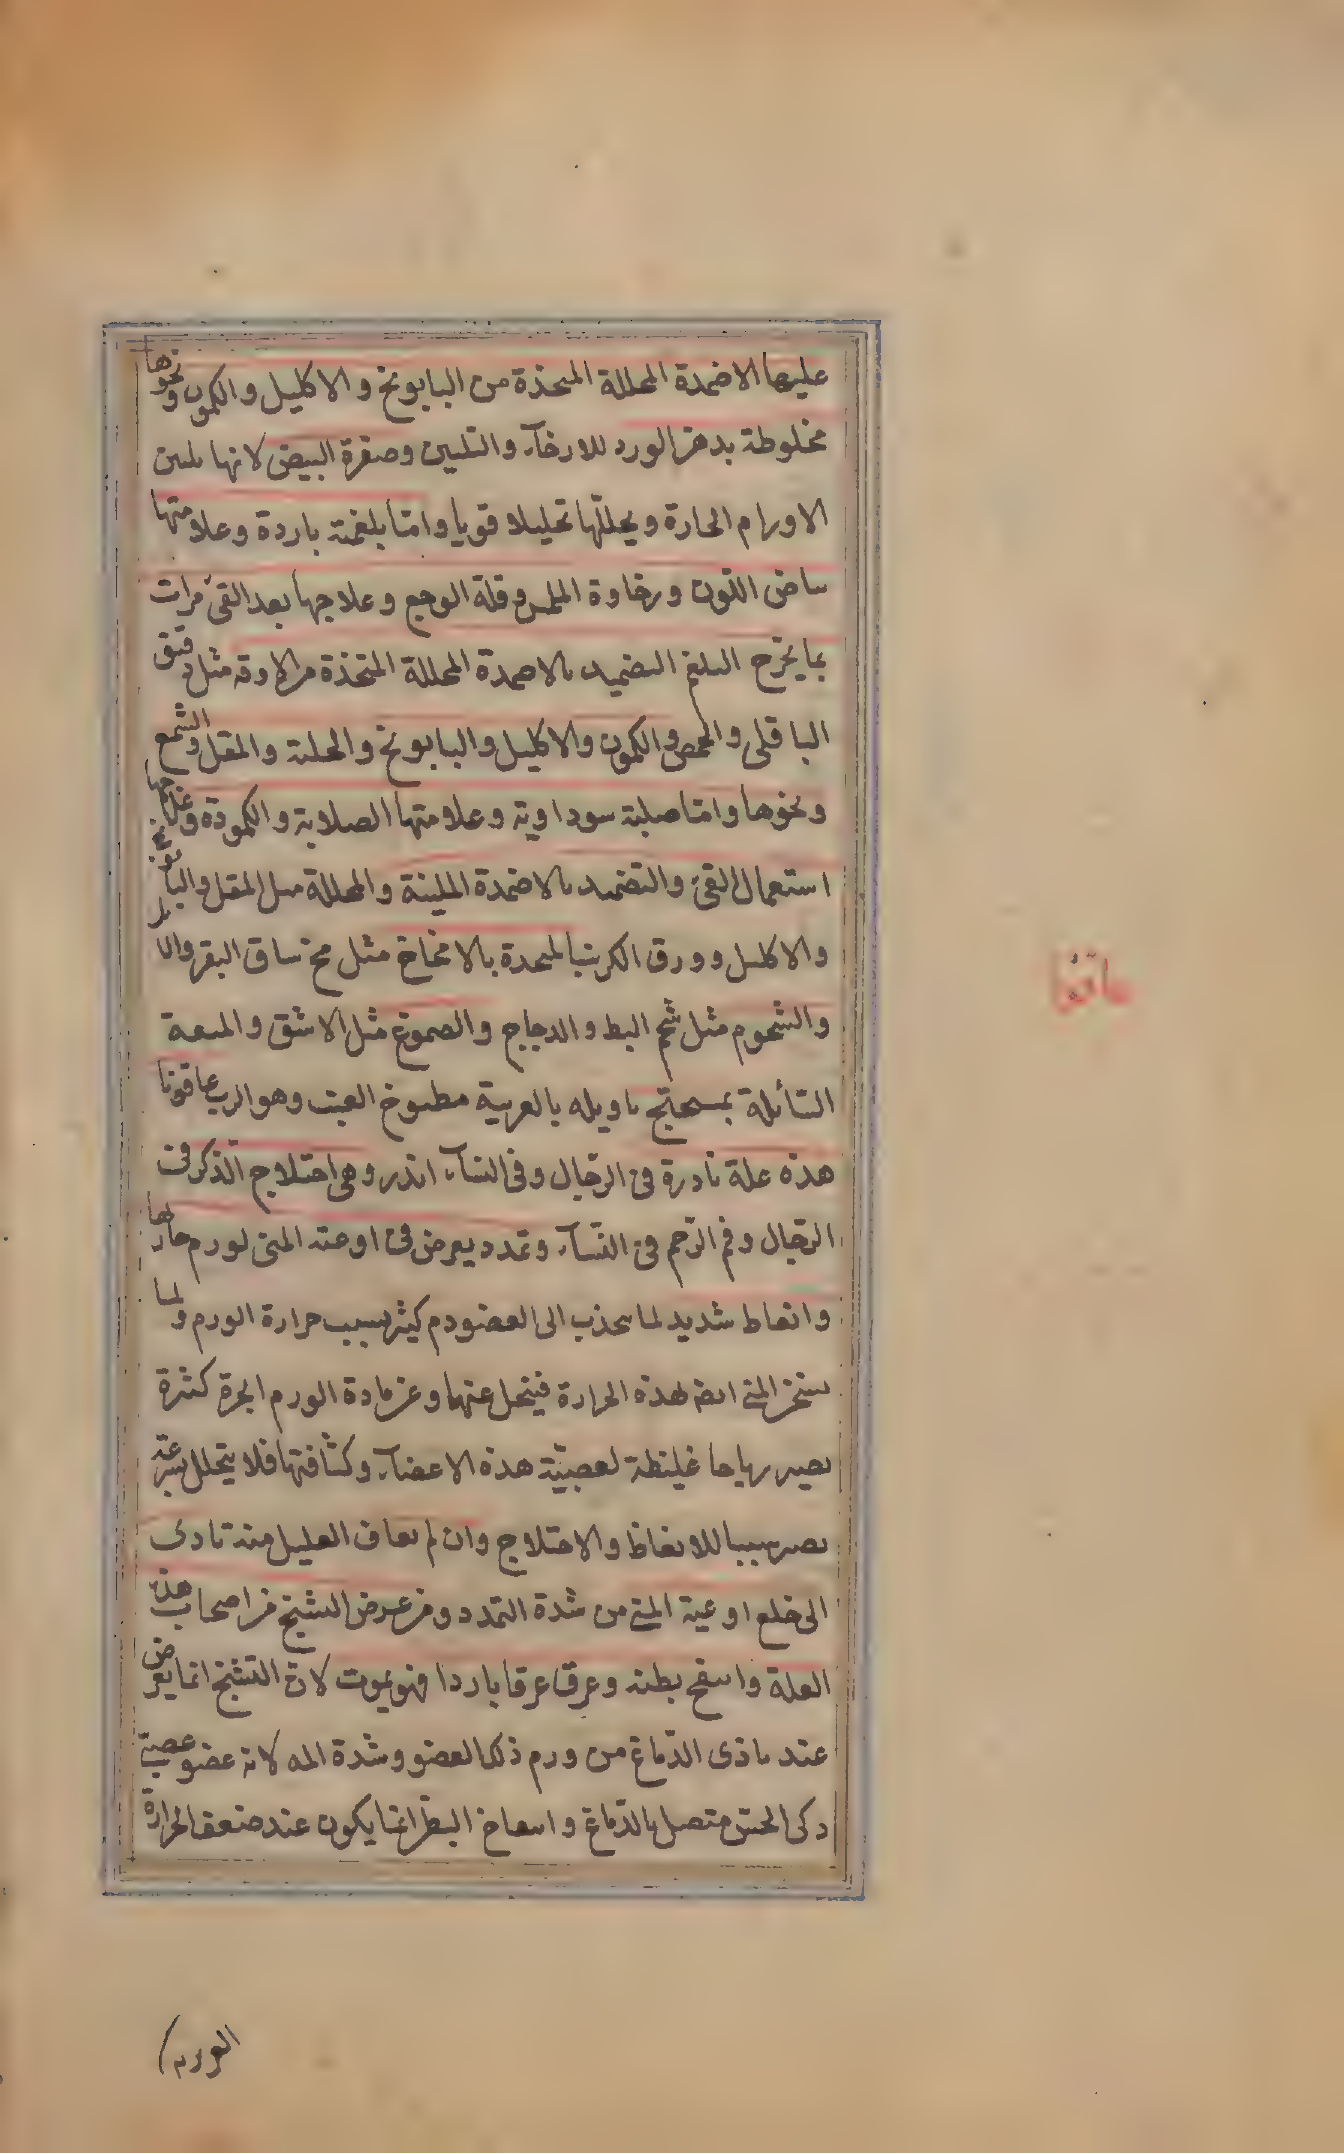 عليها الاضمدة المحللة المتخذة من البابونج والاكليل والكمون ونحوها
مخلوطة بدهن الورد للارخآء والتليين وصفرة البيض لانها تلين
الاورام الحارة ويحللها تحليلا قويا واما بلغمية باردة وعلامتها
بياض اللون ورخاوة الملمس وقلة الوجع وعلاجها بعد القئ مرات
بما يخرج البلغم التضميد بالاضمدة المحللة المتخذة من الادوية مثل دقيق
الباقلى والحمص والكمون والاكليل والبابونج والحلبة والمقل والشمع
ونحوها واما صلبة سوداوية وعلامتها الصلابة والكمودة وعلاجها
استعمال القئ والتضميد بالاضمدة الملينة والمحللة مثل المقل والبابونج
والاكليل وورق الكرنب المتخذة بالامخاخ مثل مخ ساق البقر والايل
والشحوم مثل شحم البط والدجاج والصموغ مثل الاشق والميعة
السائلة بميبختج تاويله بالعربية مطبوخ العنب وهو الرب عاقونا
هذه علة نادرة فى الرجال وفى النسآء اندر وهى اختلاج الذكر فى
الرجال وفم الرحم فى النسآء وتمدد يعرض فى اوعية المنى لورم حار لها
وانعاظ شديد لما ينجذب الى العضو دم كثير بسبب حرارة الورم ولما
يسخن المنى ايضا لهذه الحرارة فينحل عنها وعن مادة الورم ابخرة كثيرة
يصير رياحا غليظة لعصبية هذه الاعضآء وكثافتها فلا يتحلل بسرعة
يصير سببا للانعاظ والاختلاج وان لم يعاف العليل منه تادى
الى خلع اوعية المنى من شدة التمدد ومن عرض التشنج من اصحاب هذه
العلة وانتفخ بطنه وعرق عرقا باردا فهو يموت لان التشنج انما يعرض
عند تاذى الدماغ من ورم ذلك العضو وشدة المه لانه عضو عصبى
ذكى الحس متصل بالدماغ وانتفاخ البطن انما يكون عند ضعف الحرارة
الورم
عاقونا